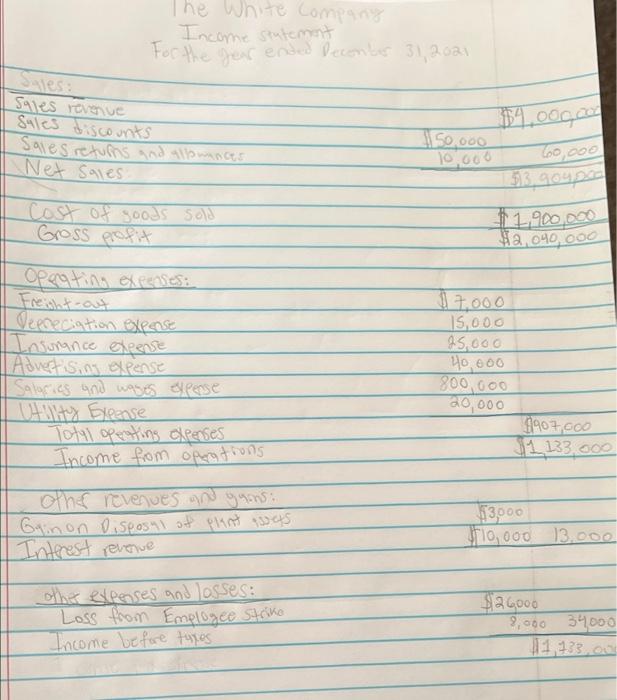 The White Company
Income statement
For the year ended December 31, 2021
Sales:
Sales revenue $4,000,000
Sales discounts $50,000
Sales returns and allowances 10,000 60,000
Net Sales
Cost of goods sold $1,900,000
Gross profit $2,040,000
Operating expenses:
Freight-out $7,000
Depreciation expense 15,000
Insurance expense 25,000
Advertising expense 40,000
Salaries and wages expense 800,000
Utility Expense 20,000
Total operating expenses $907,000
Income from operations $1,133,000
Other revenues and gains:
Gain on Disposal of plant assets $3,000
Interest revenue $10,000 13,000
other expenses and losses:
Loss from Employee strike $26,000
8,000 34,000
Income before taxes